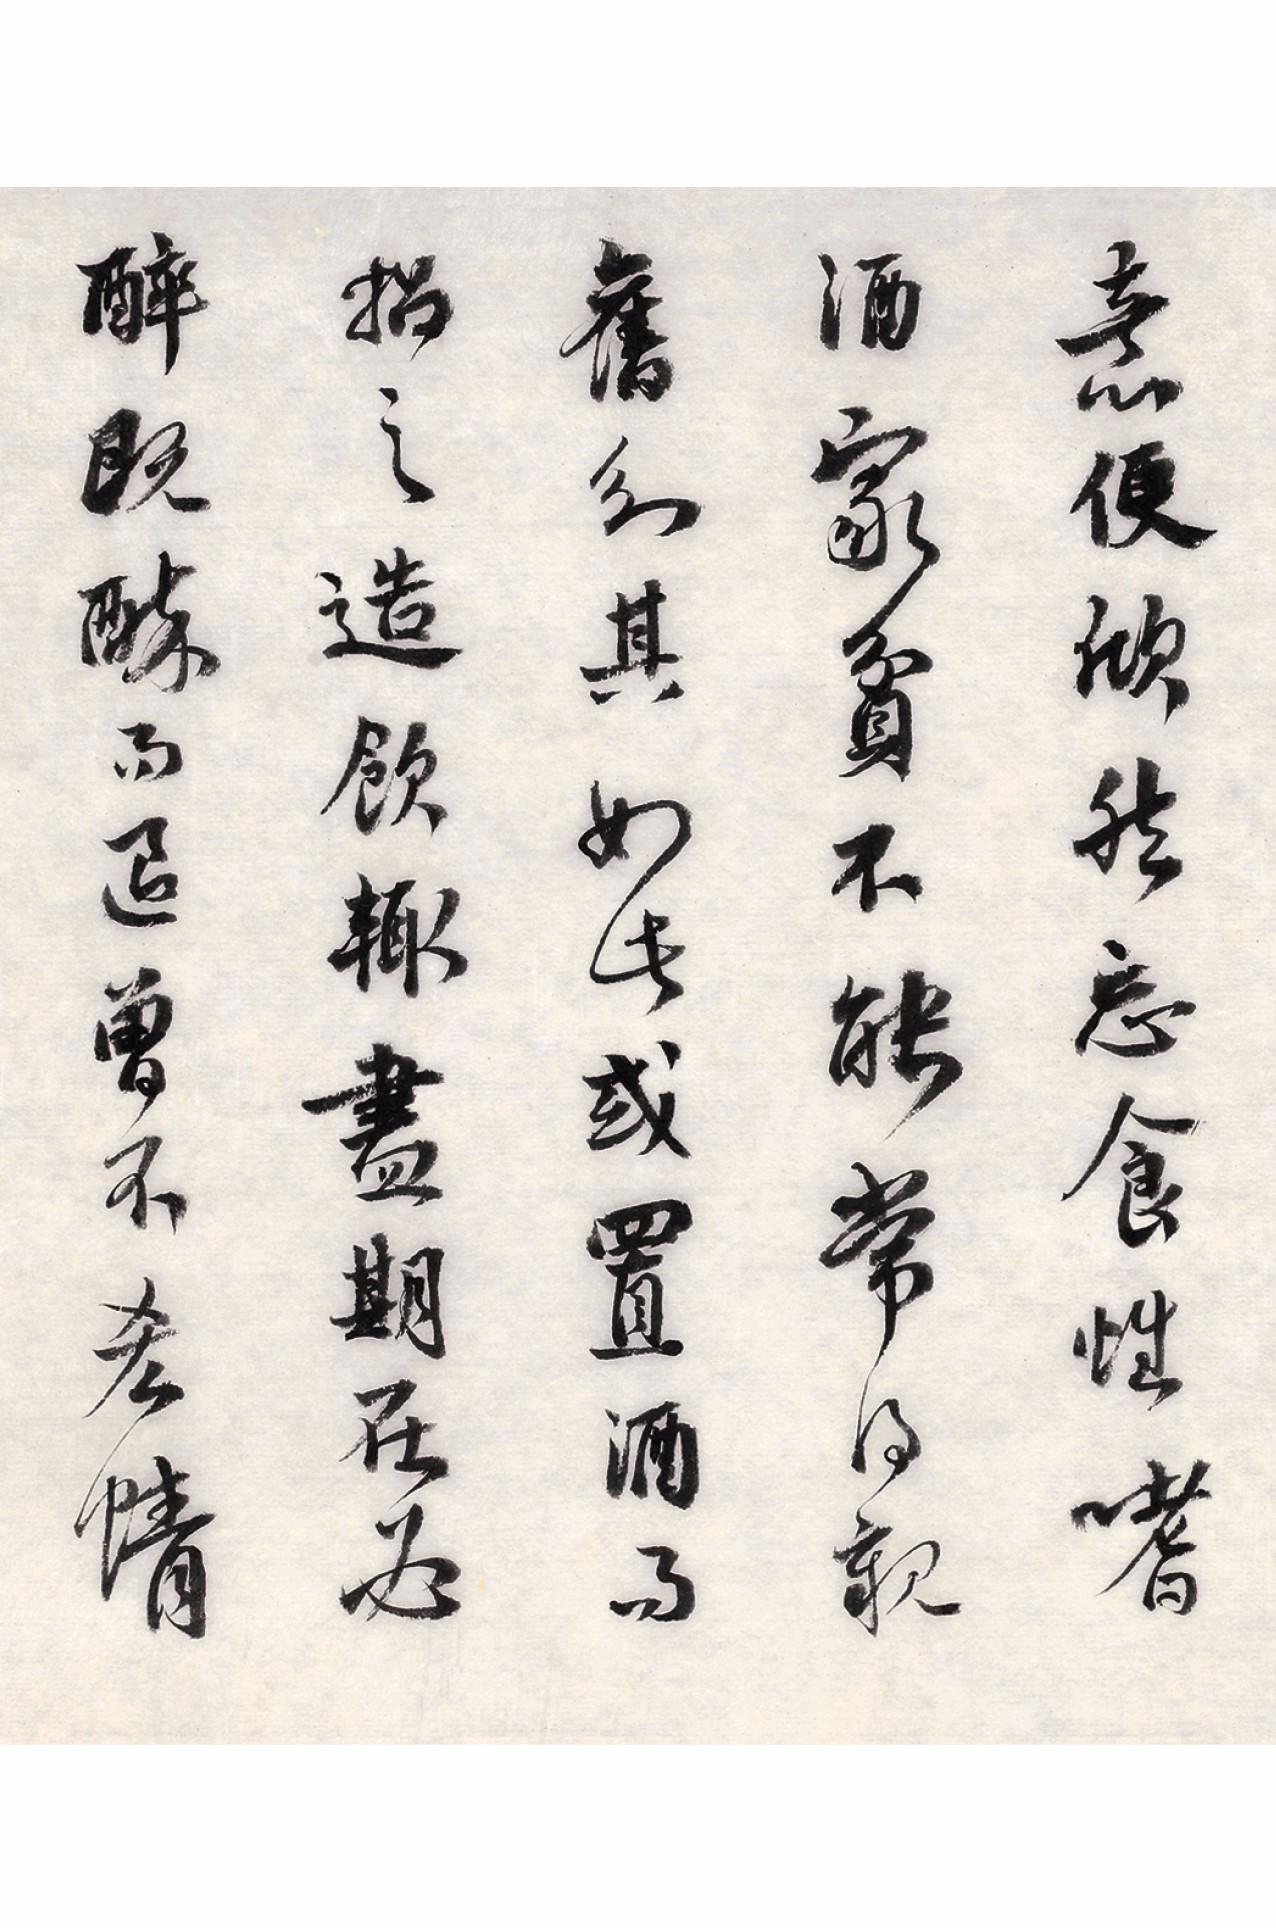 意便欣然忘食性嗜
酒家貧不能常得親
舊知其如此或置酒而
招之造飲輒盡期在必
醉既醉而退曾不吝情